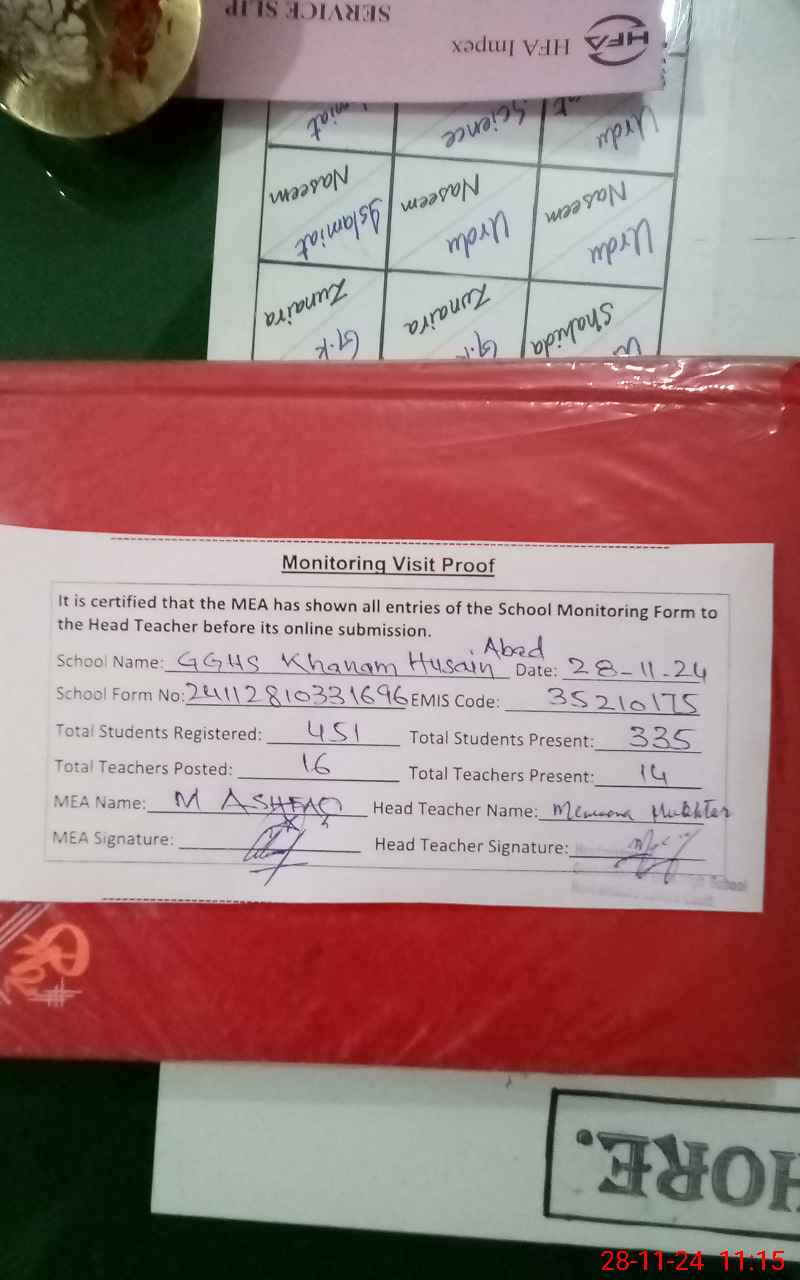 SERVICE SLIP
HFA HFA Impex
Urdu Science
Naseem Naseem Naseem
Urdu Urdu Islamiat
Shahida Zunaira Zunaira
G.K
Monitoring Visit Proof
It is certified that the MEA has shown all entries of the School Monitoring Form to
the Head Teacher before its online submission.
School Name: GGHS Khanam Husain Abad Date: 28-11-24
School Form No: 24112810331696 EMIS Code: 35210175
Total Students Registered: 451 Total Students Present: 335
Total Teachers Posted: 16 Total Teachers Present: 14
MEA Name: M ASHFAQ Head Teacher Name: Memoona Mukhtar
MEA Signature: Head Teacher Signature:
School
HORE.
28-11-24 11:15